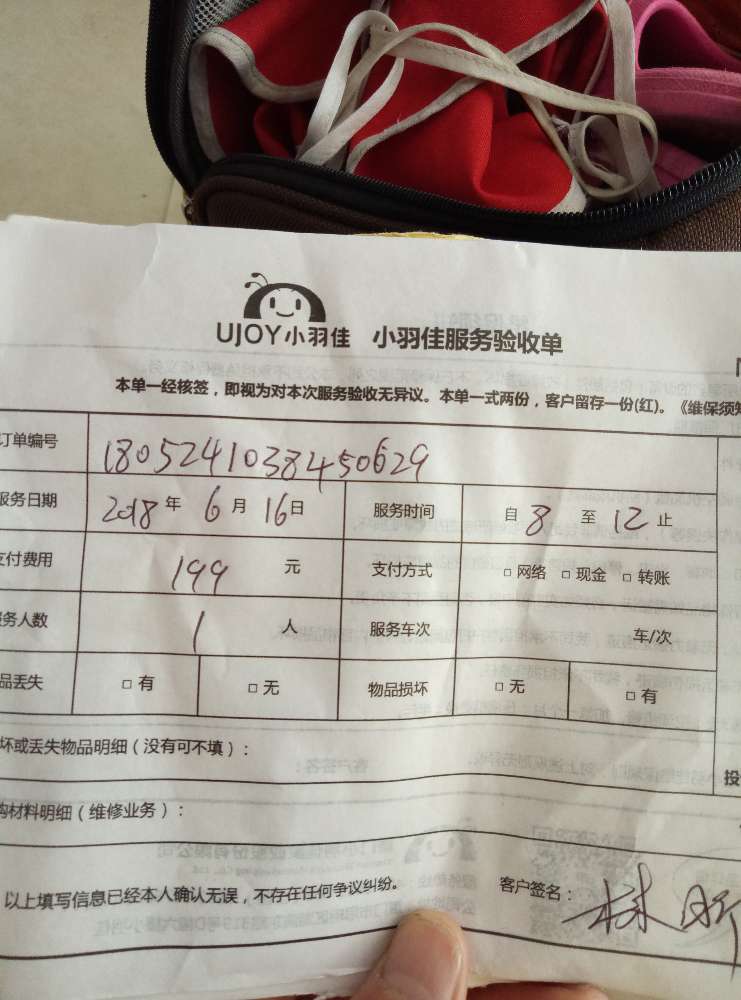 UJOY小羽佳 小羽佳服务验收单
本单一经核签，即视为对本次服务验收无异议。本单一式两份，客户留存一份(红)。《维保须知
订单编号 1805241038450629
服务日期 2018年 6月 16日 服务时间 自 8 至 12 止
支付费用 199 元 支付方式 □网络 □现金 □转账
务人数 1 人 服务车次 车/次
品丢失 □有 □无 物品损坏 □无 □有
坏或丢失物品明细（没有可不填）：
购材料明细（维修业务）：
以上填写信息已经本人确认无误，不存在任何争议纠纷。 客户签名：
投